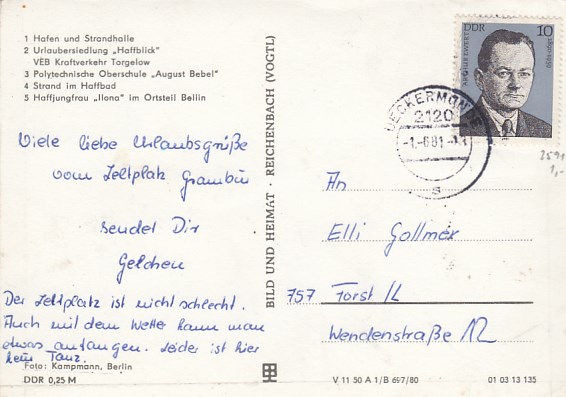 1 Hafen und Strandhalle
2 Urlaubersiedlung „Haffblick"
VEB Kraftverkehr Torgelow
3 Polytechnische Oberschule „August Bebel"
4 Strand im Haffbad
5 Haffjungfrau „Ilona" im Ortsteil Bellin
Viele liebe Urlaubsgrüße
vom Zeltplatz Grambin
sendet Dir
Gelchen
Der Zeltplatz ist nicht schlecht.
Auch mit dem Wetter kann man
etwas anfangen. Leider ist hier
kein Tanz.
Foto: Kampmann, Berlin
DDR 0,25 M
BILD UND HEIMAT · REICHENBACH (VOGTL)
DDR 10
ARTHUR EWERT
1890-1959
UECKERMÜNDE
2120
-1.-6.81
s
1,-
An
Elli Gollmer
757 Forst /L
Wendenstraße 12
V 11 50 A 1/B 697/80
01 03 13 135